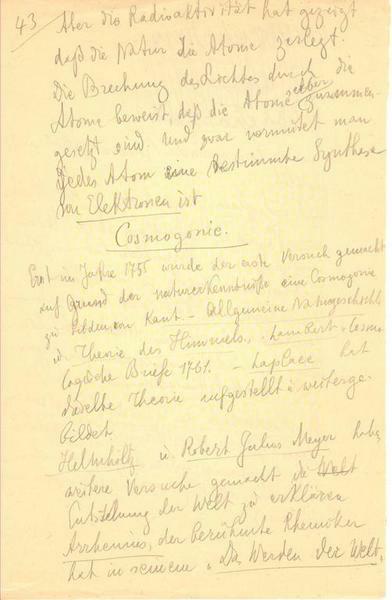 43) Aber die Radioaktivität hat gezeigt
daß die Natur die Atome zerlegt.
Die Brechung des Lichtes durch die
Atome beweist, daß die Atome selber zusammen-
gesetzt sind. und zwar vermutet man
Jedes Atom eine bestimmte Synthese
von Elektronen ist
Cosmogonie.
Erst im Jahre 1755 wurde der erste Versuch gemacht
auf Grund der naturerkenntniße eine Cosmogonie
zu bilden, von Kant. - Allgemeine Naturgeschicht
u. Theorie des Himmels, Lambert - Cosmo
logische Briefe 1761. - Laplace hat
dieselbe Theorie aufgestellt u weiterge-
bildet
Helmholtz u. Robert Julius Meyer haben
weitere Versuche gemacht die Welt
Entstehung der Welt zu erklären
Arrhenius, der berühmte Chemiker
hat in seinem „Das Werden der Welt,